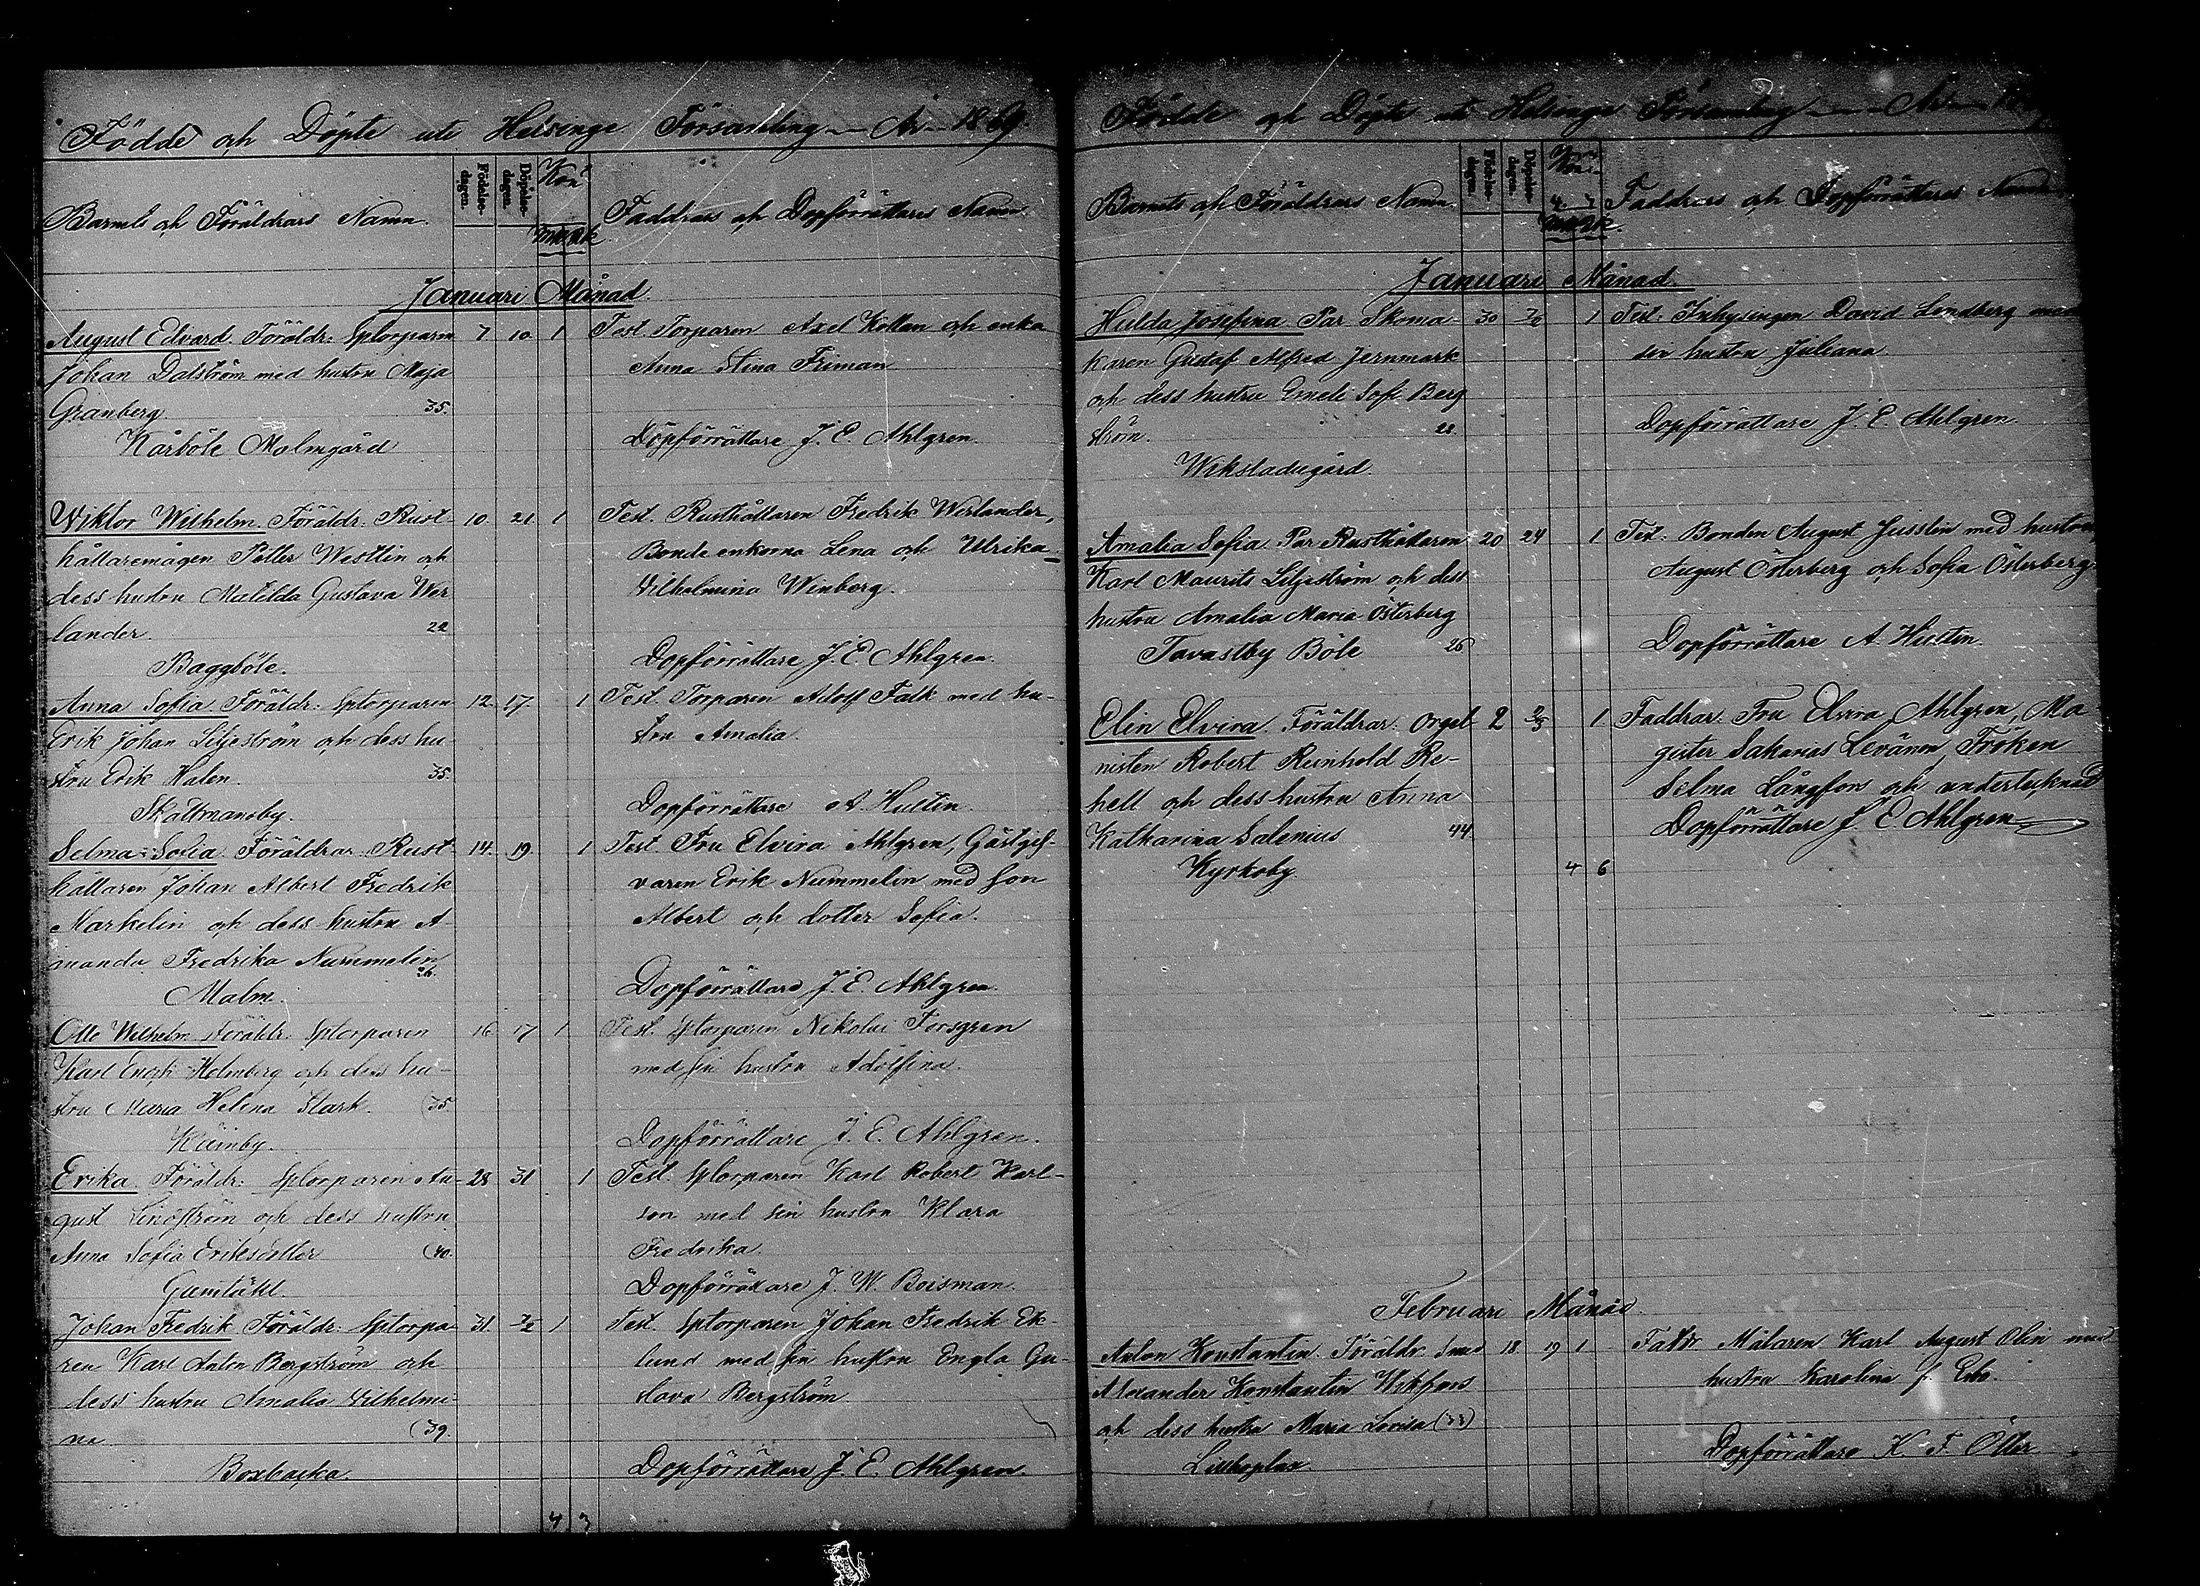 Födde och Döpte uti Helsinge Församling — År 1869.
Barnets och Föräldrars Namn.
Födelse-
dagen.
Döpelse-
dagen.
Kön
mk
qk
Faddrars och Dopförrättares Namn.
Januari Månad.
August Edvard. Föräldr: Sptorparen 7 10 1 Test. Torparen Axel Kottan och enka
Johan Dalström med hustru Maja Anna Stina Friman
Granberg. 35.
Kårböle Malmgård Dopförrättare J. E. Ahlgren.
Wiktor Wilhelm. Föräldr. Rust- 10. 21. 1 Test. Rusthållaren Fredrik Werlander,
hållaremågen Petter Westlin och Bondeenkorna Lena och Ulrika
dess hustru Matilda Gustava Wer Vilhelmina Winberg.
lander. 22
Baggböle. Dopförrättare J. E. Ahlgren.
Anna Sofia Föräldr: Sptorparen 12 17. 1 Test. Torparen Adolf Falk med hu-
Erik Johan Liljeström och dess hu- stru Amalia.
stru Erik Halen. 35.
Skattmansby. Dopförrättare A. Hultin.
Selma Sofia Föräldrar Rust- 14. 19. 1 Test. Fru Elvira Ahlgren, Gästgif-
hållaren Johan Albert Fredrik varen Erik Nummelin med son
Markelin och dess hustru A- Albert och dotter Sofia.
manda Fredrika Nummelin
26.
Malm. Dopförrättare J. E. Ahlgren.
Otto Wilhelm Föräldr. Sptorparen 16 17 1 Test. Sptorparen Nikolai Forsgren
Karl Enok Holmberg och dess hu- med sin hustru Adolfina.
stru Maria Helena Stark. (35.
Kårnby. Dopförrättare J. E. Ahlgren.
Erika Föräldr: Sptorparen Au- 28 31. 1 Test. Sptorparen Karl Robert Karl-
gust Lindström och dess hustru son med sin hustru Klara
Anna Sofia Eriksdotter (40. Fredrika.
Gamtäkt. Dopförrättare J. W. Boisman.
Johan Fredrik Föräldr. Sptorpa- 31. 3/2 1 Test. Sptorparen Johan Fredrik Ek-
ren Karl Anton Bergström och lund med sin hustru Engla Gu-
dess hustru Amalia Vilhelmi- stava Bergström.
na. (39.
Boxbacka. Dopförrättare J. E. Ahlgren.
4 3
Födde och Döpte uti Helsinge Församling — År
Barnets och Föräldrars Namn
Födelse-
dagen.
Döpelse-
dagen.
Kön
4 3
Faddrars och Dopförrättares Namn
Januari Månad.
Hulda Josefina Par Skoma- 30 7/2 1 Test. Inhysingen David Lindberg med
karen Gustaf Alfred Jernmark sin hustru Juliana
och dess hustru Emeli Sofi Berg
ström. 22 Dopförrättare J. E. Ahlgren
Wikstadugård.
Amalia Sofia Par Rusthållaren 20 24 1 Test. Bonden August Jusslin med hustru,
Karl Maurits Liljeström och dess August Österberg och Sofia Österberg.
hustru Amalia Maria Österberg
Tavastby Böle 26 Dopförrättare A. Hultin.
Elin Elvira. Föräldrar. Orgel- 2 2/3 1 Faddrar. Fru Elvira Ahlgren, Ma
nisten Robert Reinhold Re- gister Sakarias Levänen, Fröken
hell och dess hustru Anna Selma Långfors och undertecknad
Katharina Salenius 44 Dopförrättare J. E. Ahlgren
Kyrkoby. 4 6
Februari Månad.
Anton Konstantin. Föräldr. Smed 18 19 1 Faddr Målaren Karl August Olin med
Alexander Konstantin Wikfors hustru Karolina f. Ebo.
och dess hustru Maria Lovisa (33)
Dopförrättare K. F. Öller